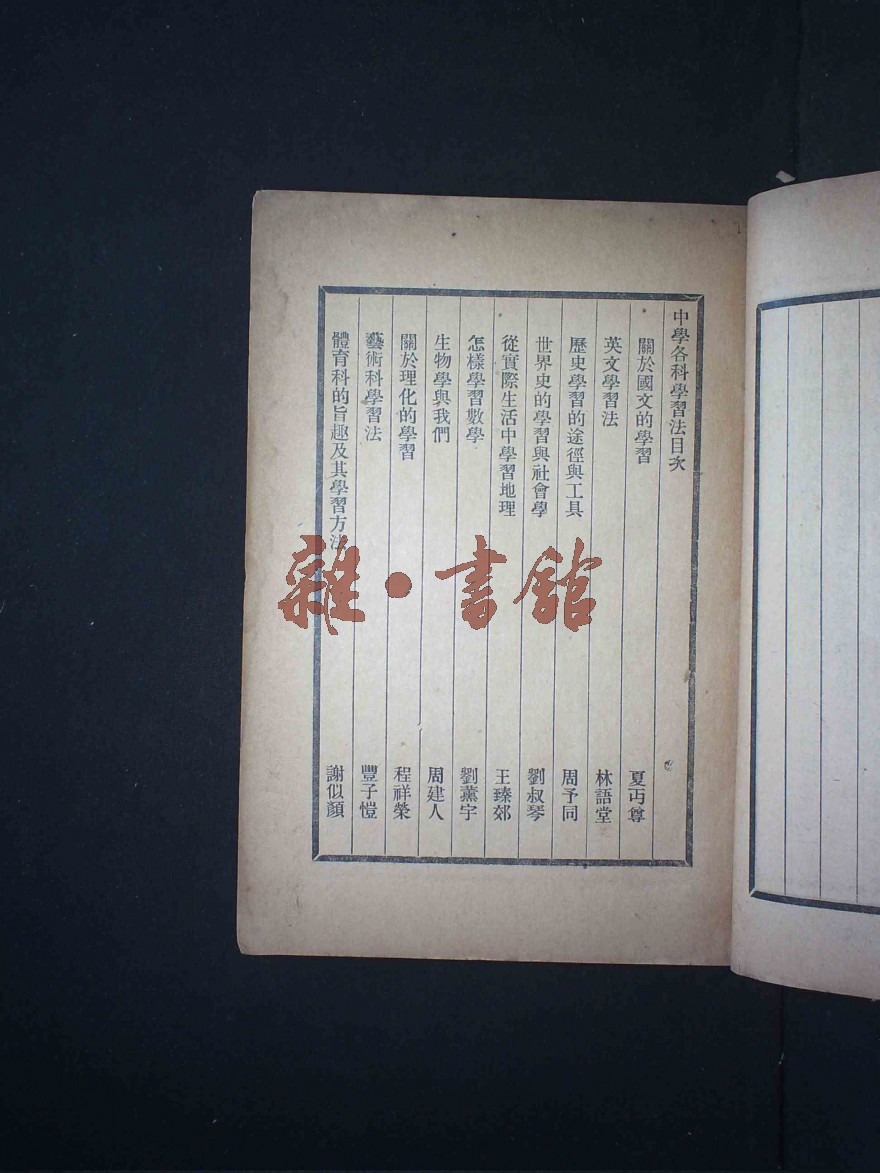 中學各科學習法目次
關於國文的學習 夏丏尊
英文學習法 林語堂
歷史學習的途徑與工具 周予同
世界史的學習與社會學 劉叔琴
從實際生活中學習地理 王臻郊
怎樣學習數學 劉薰宇
生物學與我們 周建人
關於理化的學習 程祥榮
藝術科學習法 豐子愷
體育科的旨趣及其學習方法 謝似顏
雜·書館